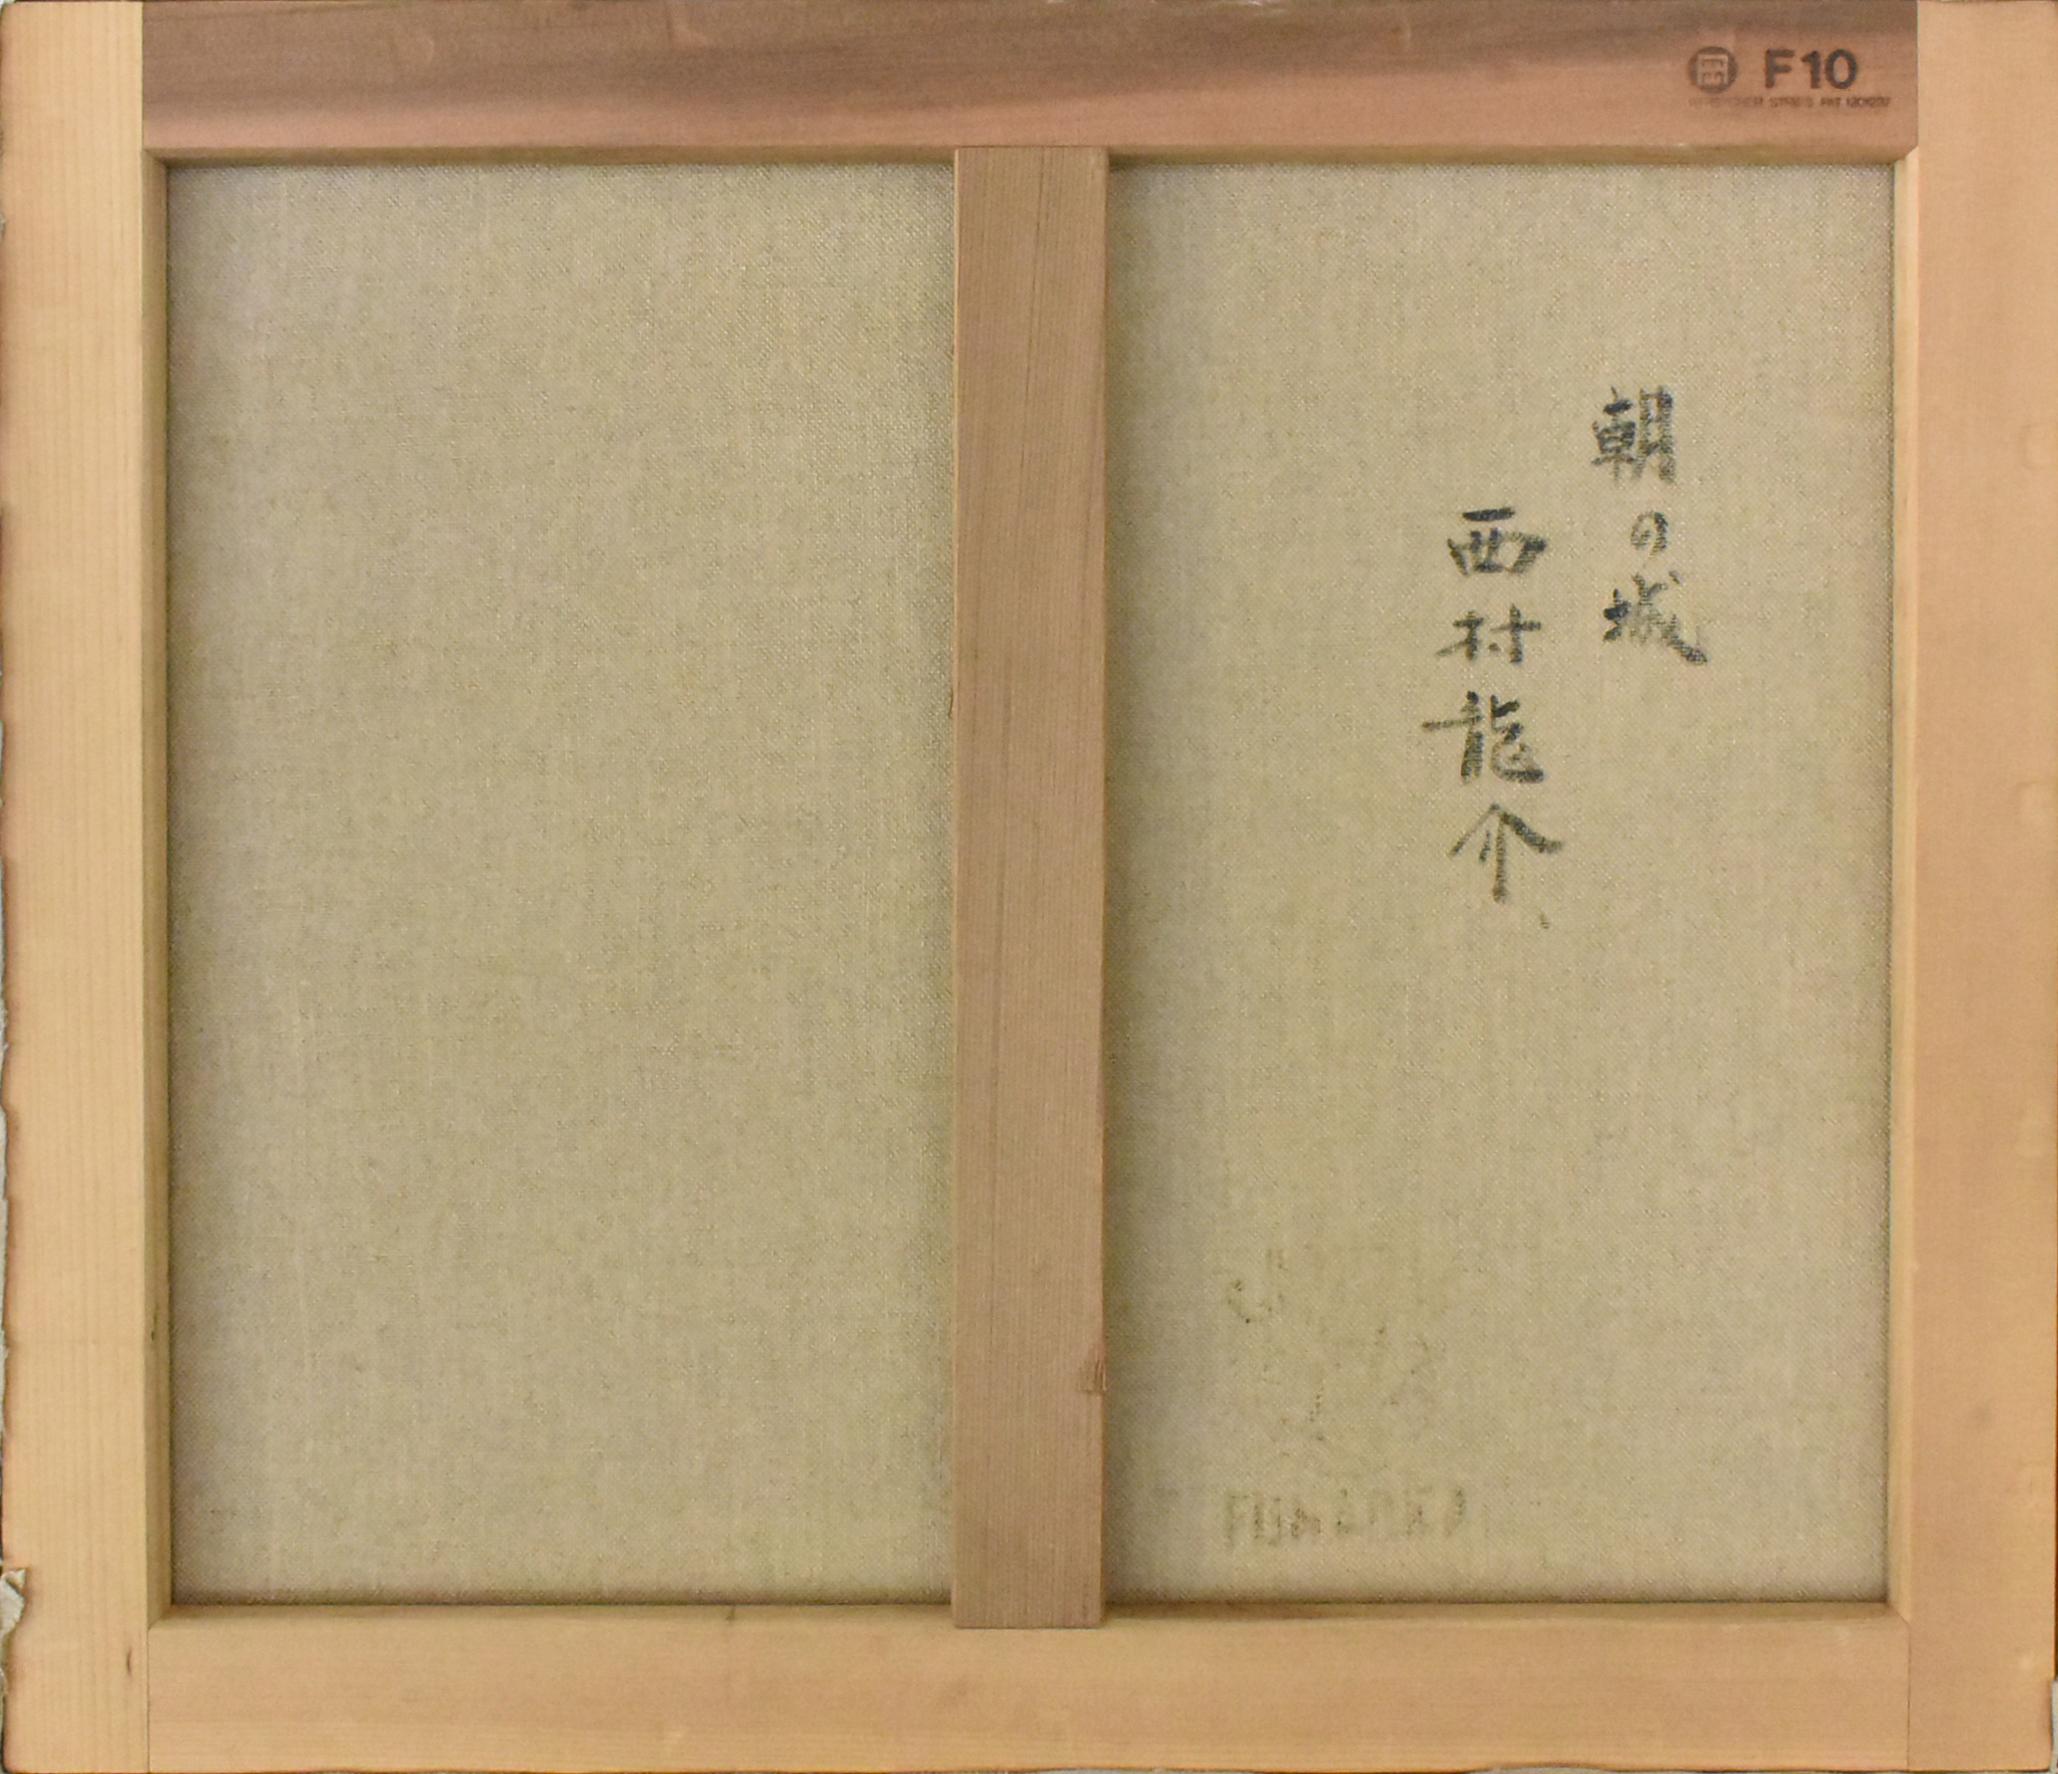 F10
朝の城
西村龍介